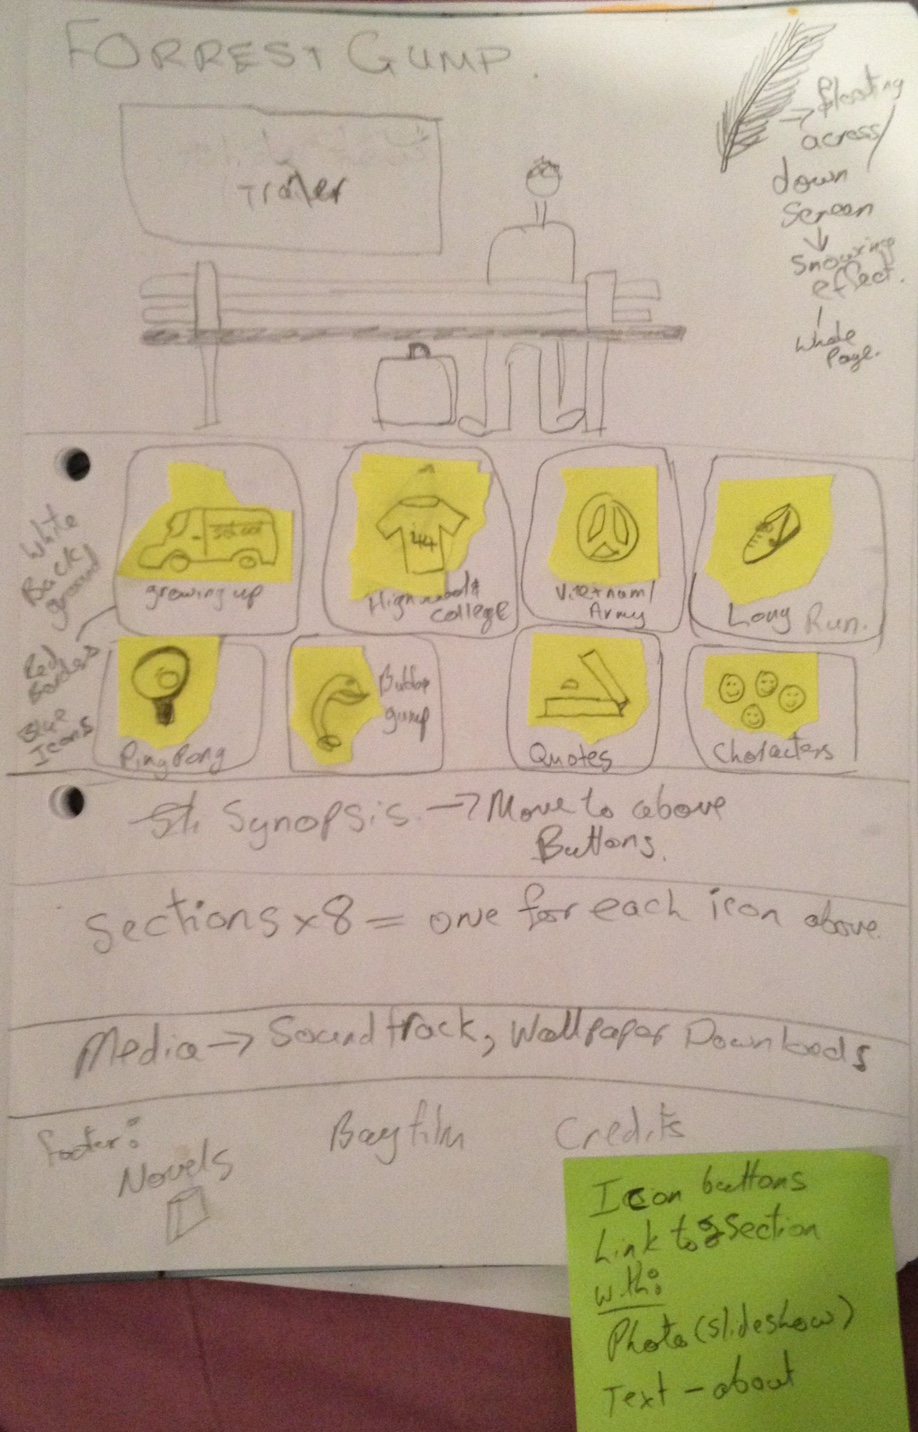 FORREST GUMP.
Trailer
→ floating
across/
down
screen
↓
snowing
effect.
whole
Page.
White
Back
ground
Red
Borders
Blue
Icons
School
growing up
44
High school &
college
Vietnam/
Army
Long Run.
Ping Pong
Bubba
gump
Quotes
Characters
Synopsis. → Move to above
Buttons.
Sections x 8 = one for each icon above.
Media → Soundtrack, Wallpaper Downloads
Footer:
Novels
Buy film
Credits
Icon buttons
Link to section
with:
Photo (slideshow)
Text - about